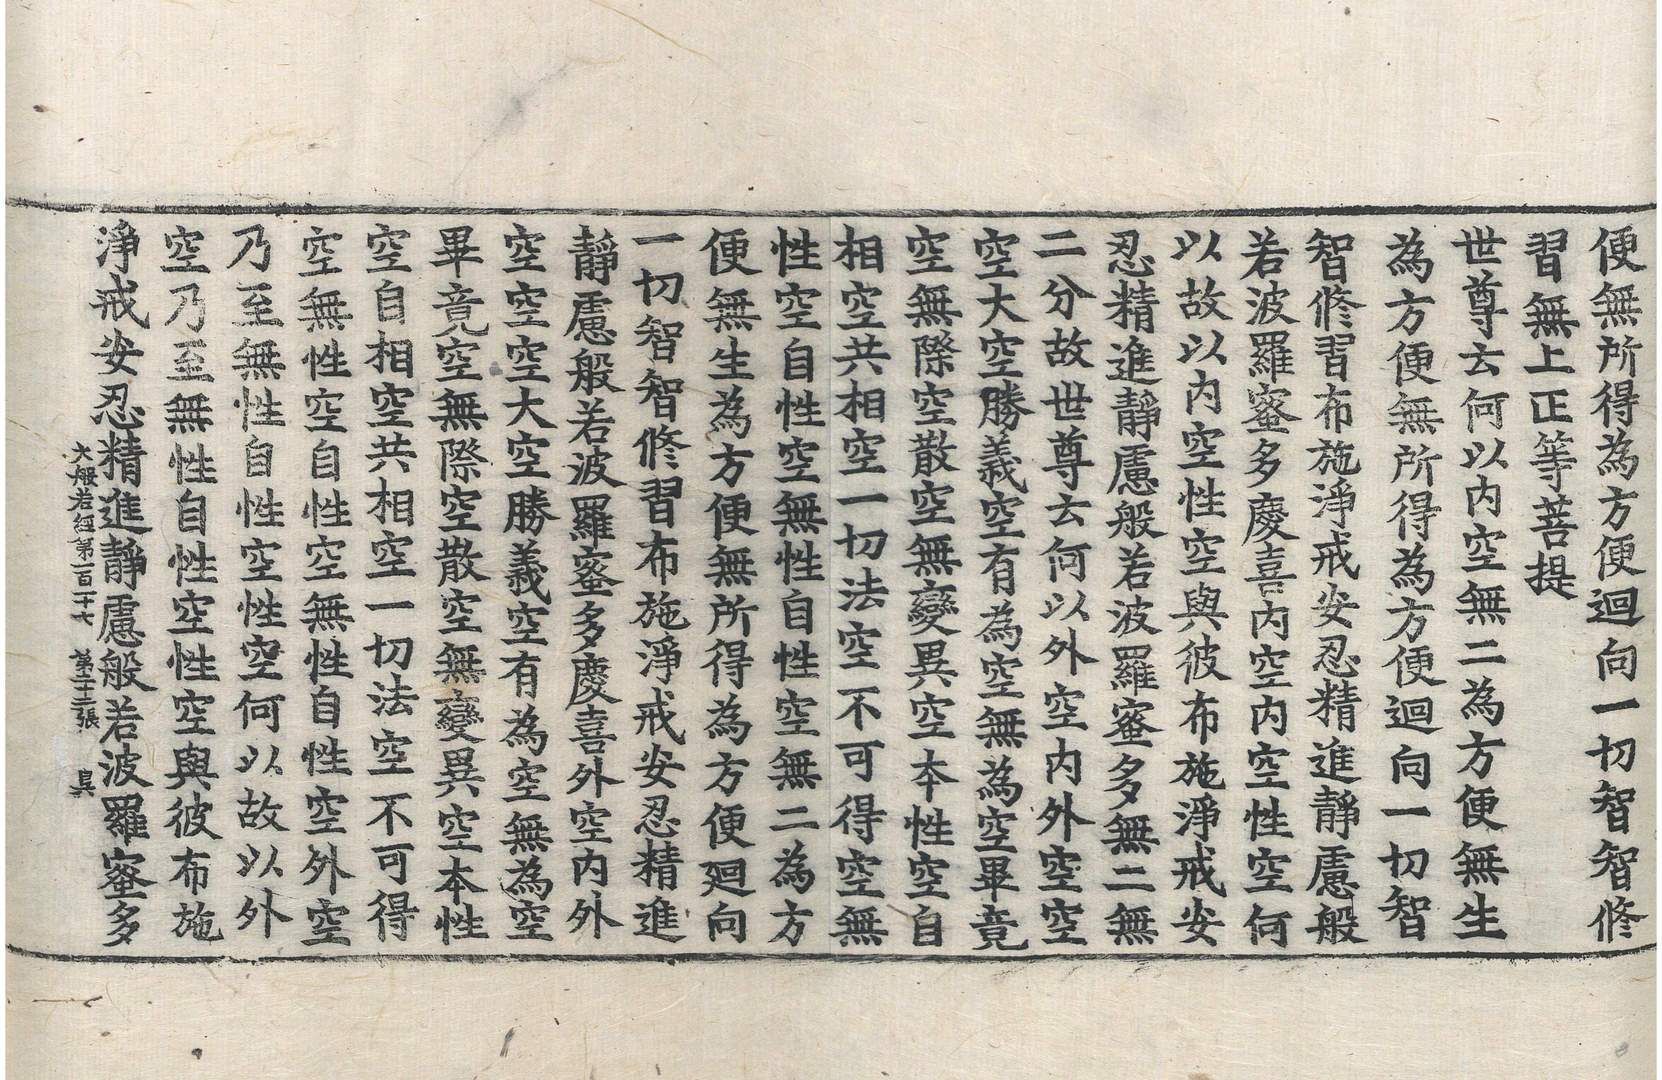 便無所得為方便迴向一切智智修
習無上正等菩提
世尊云何以内空無二為方便無生
為方便無所得為方便迴向一切智
智修習布施淨戒安忍精進靜慮般
若波羅蜜多慶喜内空内空性空何
以故以内空性空與彼布施淨戒安
忍精進靜慮般若波羅蜜多無二無
二分故世尊云何以外空内外空空
空大空勝義空有為空無為空畢竟
空無際空散空無變異空本性空自
相空共相空一切法空不可得空無
性空自性空無性自性空無二為方
便無生為方便無所得為方便廻向
一切智智修習布施淨戒安忍精進
靜慮般若波羅蜜多慶喜外空内外
空空空大空勝義空有為空無為空
畢竟空無際空散空無變異空本性
空自相空共相空一切法空不可得
空無性空自性空無性自性空外空
乃至無性自性空性空何以故以外
空乃至無性自性空性空與彼布施
淨戒安忍精進靜慮般若波羅蜜多
大般若經第一百一十七　第二十三張　昃